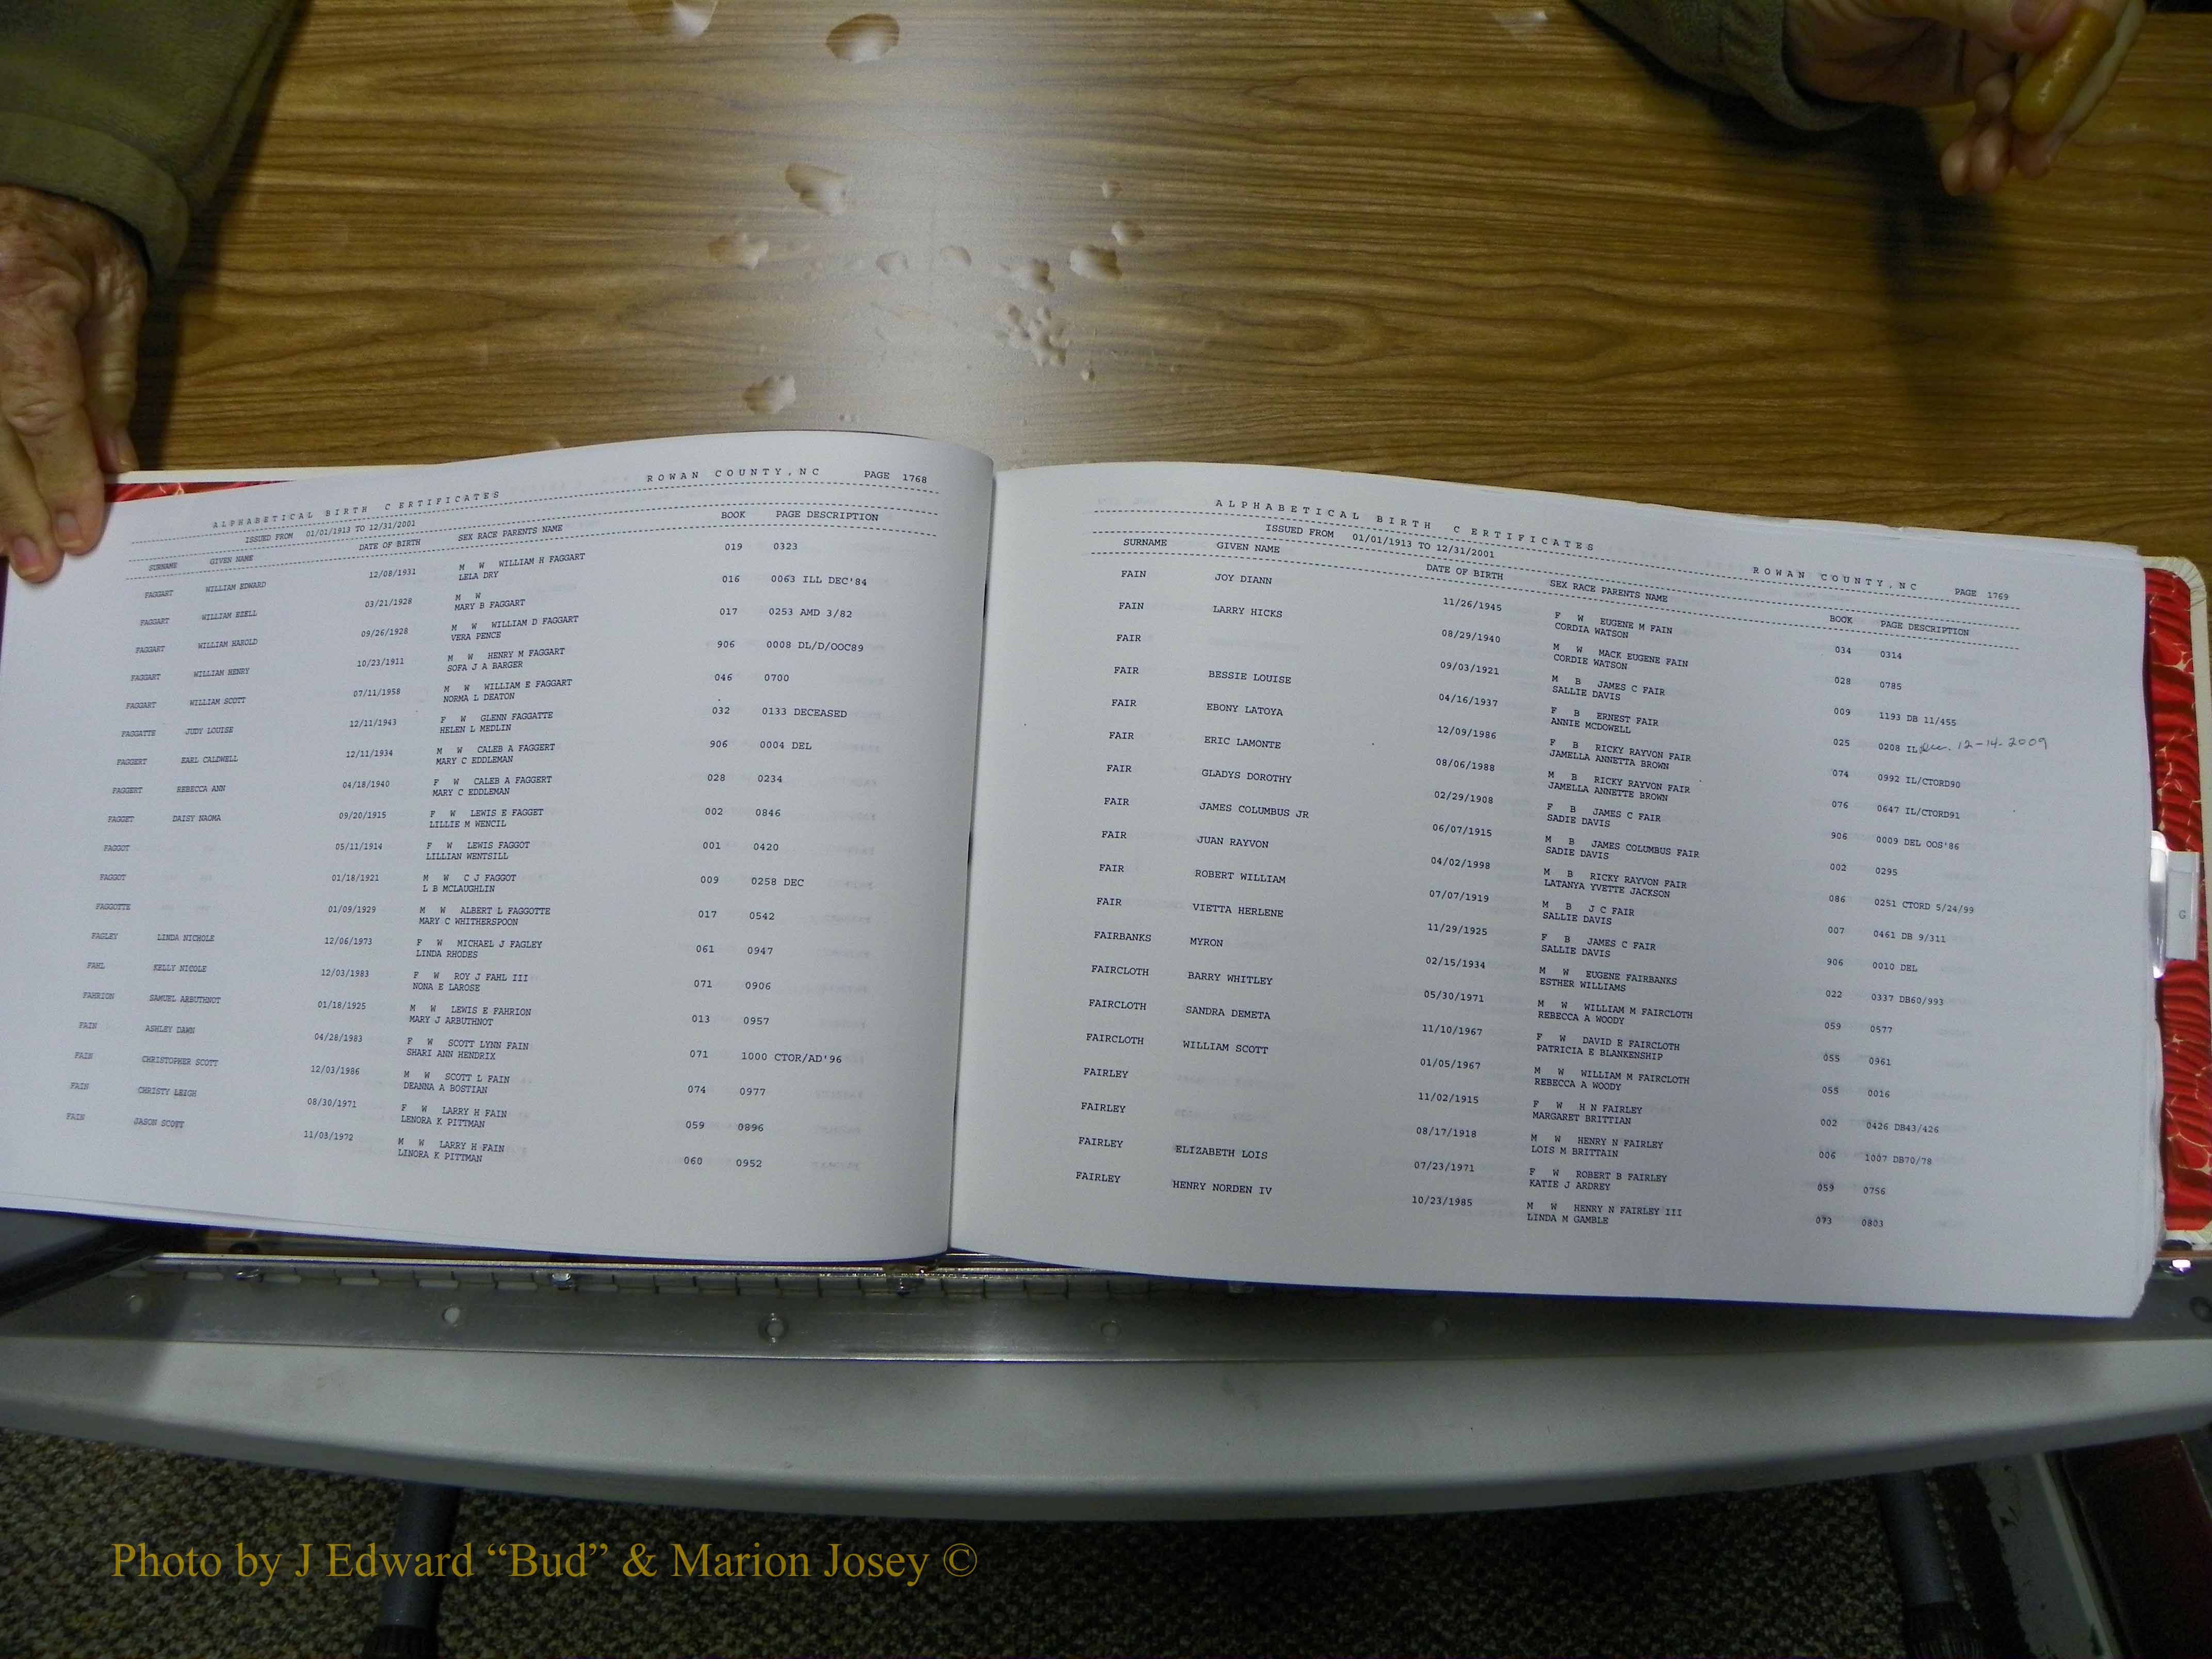 ALPHABETICAL BIRTH CERTIFICATES ROWAN COUNTY, NC PAGE 1768
ISSUED FROM 01/01/1913 TO 12/31/2001
SURNAME GIVEN NAME DATE OF BIRTH SEX RACE PARENTS NAME BOOK PAGE DESCRIPTION
FAGGART WILLIAM EDWARD 12/08/1931 M W WILLIAM H FAGGART 019 0323
LELA DRY
FAGGART WILLIAM EZELL 03/21/1928 M W 016 0063 ILL DEC'84
MARY B FAGGART
FAGGART WILLIAM HAROLD 09/26/1928 M W WILLIAM D FAGGART 017 0253 AMD 3/82
VERA PENCE
FAGGART WILLIAM HENRY 10/23/1911 M W HENRY M FAGGART 906 0008 DL/D/OOC89
SOFA J A BARGER
FAGGART WILLIAM SCOTT 07/11/1958 M W WILLIAM E FAGGART 046 0700
NORMA L DEATON
FAGGATTE JUDY LOUISE 12/11/1943 F W GLENN FAGGATTE 032 0133 DECEASED
HELEN L MEDLIN
FAGGERT EARL CALDWELL 12/11/1934 M W CALEB A FAGGERT 906 0004 DEL
MARY C EDDLEMAN
FAGGERT REBECCA ANN 04/18/1940 F W CALEB A FAGGERT 028 0234
MARY C EDDLEMAN
FAGGET DAISY NAOMA 09/20/1915 F W LEWIS E FAGGET 002 0846
LILLIE M WENCIL
FAGGOT 05/11/1914 F W LEWIS FAGGOT 001 0420
LILLIAN WENTSILL
FAGGOT 01/18/1921 M W C J FAGGOT 009 0258 DEC
L B MCLAUGHLIN
FAGGOTTE 01/09/1929 M W ALBERT L FAGGOTTE 017 0542
MARY C WHITHERSPOON
FAGLEY LINDA NICHOLE 12/06/1973 F W MICHAEL J FAGLEY 061 0947
LINDA RHODES
FAHL KELLY NICOLE 12/03/1983 F W ROY J FAHL III 071 0906
NONA E LAROSE
FAHRION SAMUEL ARBUTHNOT 01/18/1925 M W LEWIS E FAHRION 013 0957
MARY J ARBUTHNOT
FAIN ASHLEY DAWN 04/28/1983 F W SCOTT LYNN FAIN 071 1000 CTOR/AD'96
SHARI ANN HENDRIX
FAIN CHRISTOPHER SCOTT 12/03/1986 M W SCOTT L FAIN 074 0977
DEANNA A BOSTIAN
FAIN CHRISTY LEIGH 08/30/1971 F W LARRY H FAIN 059 0896
LENORA K PITTMAN
FAIN JASON SCOTT 11/03/1972 M W LARRY H FAIN 060 0952
LINORA K PITTMAN
ALPHABETICAL BIRTH CERTIFICATES ROWAN COUNTY, NC PAGE 1769
ISSUED FROM 01/01/1913 TO 12/31/2001
SURNAME GIVEN NAME DATE OF BIRTH SEX RACE PARENTS NAME BOOK PAGE DESCRIPTION
FAIN JOY DIANN 11/26/1945 F W EUGENE M FAIN 034 0314
CORDIA WATSON
FAIN LARRY HICKS 08/29/1940 M W MACK EUGENE FAIN 028 0785
CORDIE WATSON
FAIR 09/03/1921 M B JAMES C FAIR 009 1193 DB 11/455
SALLIE DAVIS
FAIR BESSIE LOUISE 04/16/1937 F B ERNEST FAIR 025 0208 IL 12-14-2009
ANNIE MCDOWELL
FAIR EBONY LATOYA 12/09/1986 F B RICKY RAYVON FAIR 074 0992 IL/CTORD90
JAMELLA ANNETTA BROWN
FAIR ERIC LAMONTE 08/06/1988 M B RICKY RAYVON FAIR 076 0647 IL/CTORD91
JAMELLA ANNETTE BROWN
FAIR GLADYS DOROTHY 02/29/1908 F B JAMES C FAIR 906 0009 DEL OOS'86
SADIE DAVIS
FAIR JAMES COLUMBUS JR 06/07/1915 M B JAMES COLUMBUS FAIR 002 0295
SADIE DAVIS
FAIR JUAN RAYVON 04/02/1998 M B RICKY RAYVON FAIR 086 0251 CTORD 5/24/99
LATANYA YVETTE JACKSON
FAIR ROBERT WILLIAM 07/07/1919 M B J C FAIR 007 0461 DB 9/311
SALLIE DAVIS
FAIR VIETTA HERLENE 11/29/1925 F B JAMES C FAIR 906 0010 DEL
SALLIE DAVIS
FAIRBANKS MYRON 02/15/1934 M W EUGENE FAIRBANKS 022 0337 DB60/993
ESTHER WILLIAMS
FAIRCLOTH BARRY WHITLEY 05/30/1971 M W WILLIAM M FAIRCLOTH 059 0577
REBECCA A WOODY
FAIRCLOTH SANDRA DEMETA 11/10/1967 F W DAVID E FAIRCLOTH 055 0961
PATRICIA E BLANKENSHIP
FAIRCLOTH WILLIAM SCOTT 01/05/1967 M W WILLIAM M FAIRCLOTH 055 0016
REBECCA A WOODY
FAIRLEY 11/02/1915 F W H N FAIRLEY 002 0426 DB43/426
MARGARET BRITTIAN
FAIRLEY 08/17/1918 M W HENRY N FAIRLEY 006 1007 DB70/78
LOIS M BRITTAIN
FAIRLEY ELIZABETH LOIS 07/23/1971 F W ROBERT B FAIRLEY 059 0756
KATIE J ARDREY
FAIRLEY HENRY NORDEN IV 10/23/1985 M W HENRY N FAIRLEY III 073 0803
LINDA M GAMBLE
G
Photo by J Edward “Bud” & Marion Josey ©